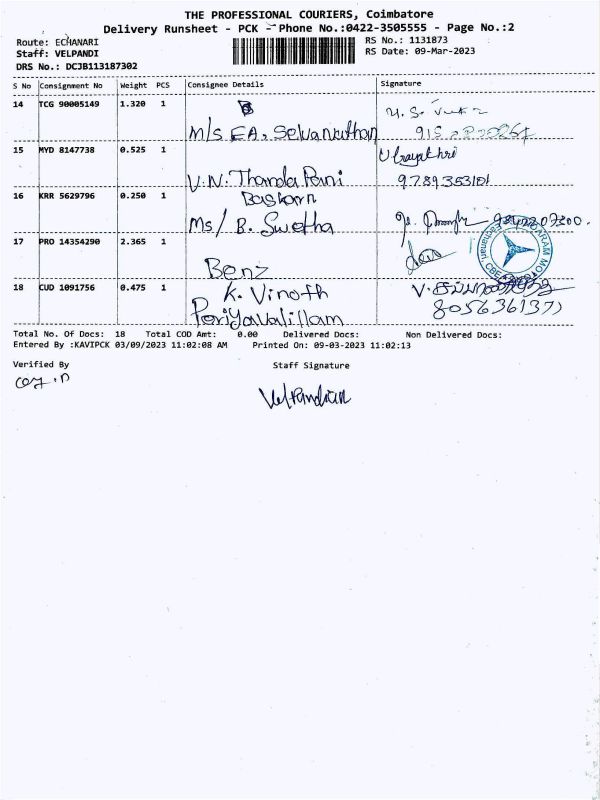 THE PROFESSIONAL COURIERS, Coimbatore
Delivery Runsheet - PCK - Phone No.:0422-3505555 - Page No.:2
Route: ECHANARI
Staff: VELPANDI
DRS No.: DCJB113187302
RS No.: 1131873
RS Date: 09-Mar-2023
S No Consignment No Weight PCS Consignee Details Signature
14 TCG 90005149 1.320 1
M/s EA. Selvanathan
15 MYD 8147738 0.525 1
V.N. Thanda Pani 9789353101
Baskarn
16 KRR 5629796 0.250 1
Ms/ B. Swetha
17 PRO 14354290 2.365 1
Benz
18 CUD 1091756 0.475 1
K. Vinoth
Total No. Of Docs: 18 Total COD Amt: 0.00 Delivered Docs: Non Delivered Docs:
Entered By :KAVIPCK 03/09/2023 11:02:08 AM Printed On: 09-03-2023 11:02:13
Verified By Staff Signature
Velpandian